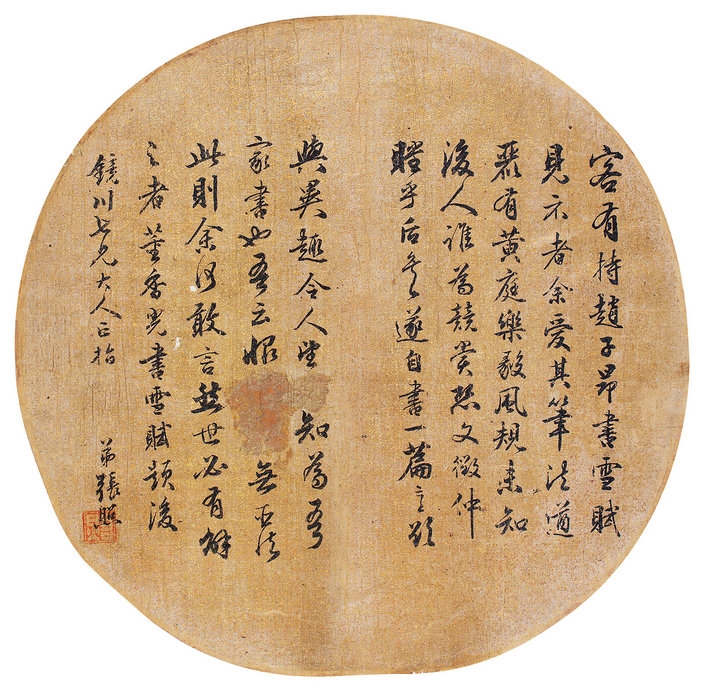 客有持趙子昂書雪賦
見示者余愛其筆法遒
麗有黃庭樂毅風規未知
後人誰為競賞恐文徵仲
瞠乎后矣遂自書一篇意欲
與異趣令人望 知為吾
家書也 云恨 無臣法
此則余何敢言然世必有解
之者董香光書雪賦題後
鏡川七兄大人正指
弟張照